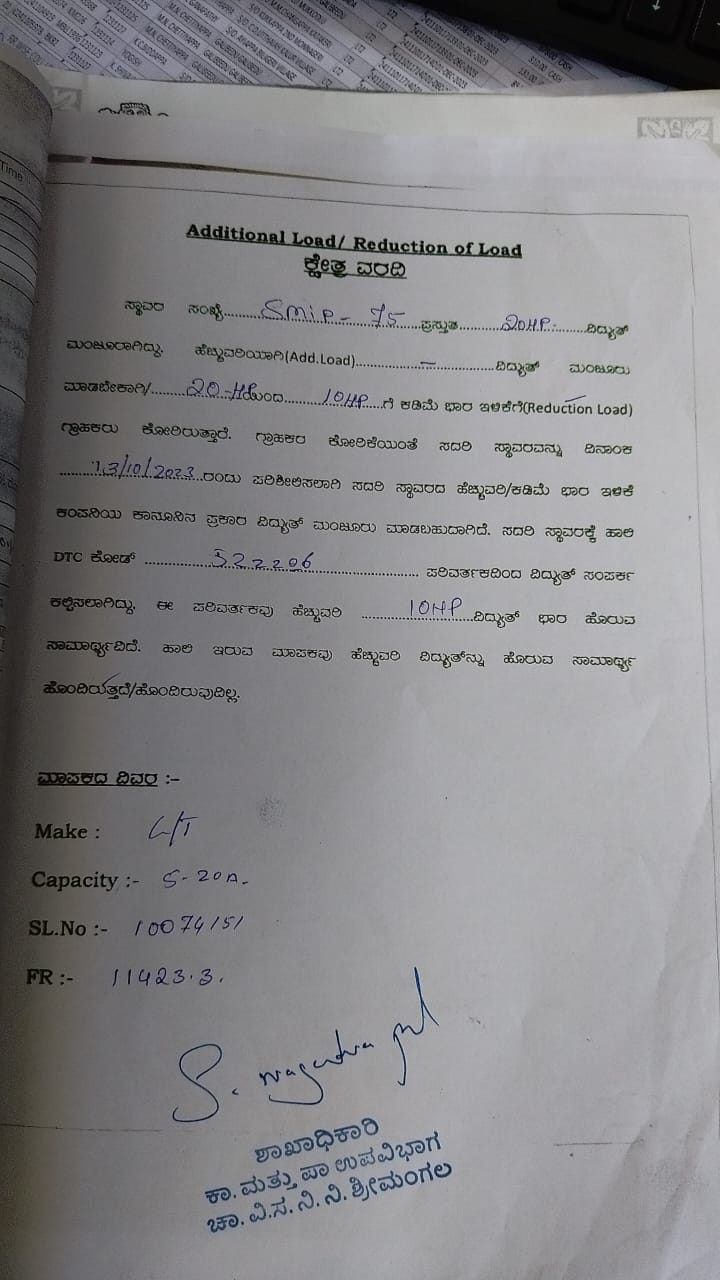 Additional Load/ Reduction of Load
ಕ್ಷೇತ್ರ ವರದಿ
ಸ್ಥಾವರ ಸಂಖ್ಯೆ.......... SMIP - 75 .......ಪ್ರಸ್ತುತ........... 20HP. .......ವಿದ್ಯುತ್
ಮಂಜೂರಾಗಿದ್ದು, ಹೆಚ್ಚುವರಿಯಾಗಿ(Add.Load)................ — ................ವಿದ್ಯುತ್ ಮಂಜೂರು
ಮಾಡಬೇಕಾಗಿ/......... 20-HP ಯಿಂದ......... 10HP ....ಗೆ ಕಡಿಮೆ ಭಾರ ಇಳಿಕೆಗೆ(Reduction Load)
ಗ್ರಾಹಕರು ಕೋರಿರುತ್ತಾರೆ. ಗ್ರಾಹಕರ ಕೋರಿಕೆಯಂತೆ ಸದರಿ ಸ್ಥಾವರವನ್ನು ದಿನಾಂಕ
........ 13/10/2023 ...ರಂದು ಪರಿಶೀಲಿಸಲಾಗಿ ಸದರಿ ಸ್ಥಾವರದ ಹೆಚ್ಚುವರಿ/ಕಡಿಮೆ ಭಾರ ಇಳಿಕೆ
ಕಂಪನಿಯ ಕಾನೂನಿನ ಪ್ರಕಾರ ವಿದ್ಯುತ್ ಮಂಜೂರು ಮಾಡಬಹುದಾಗಿದೆ. ಸದರಿ ಸ್ಥಾವರಕ್ಕೆ ಹಾಲಿ
DTC ಕೋಡ್ ................ 522206 ........................ ಪರಿವರ್ತಕದಿಂದ ವಿದ್ಯುತ್ ಸಂಪರ್ಕ
ಕಲ್ಪಿಸಲಾಗಿದ್ದು, ಈ ಪರಿವರ್ತಕವು ಹೆಚ್ಚುವರಿ ............ 10HP .......ವಿದ್ಯುತ್ ಭಾರ ಹೊರುವ
ಸಾಮಾರ್ಥ್ಯವಿದೆ. ಹಾಲಿ ಇರುವ ಮಾಪಕವು ಹೆಚ್ಚುವರಿ ವಿದ್ಯುತ್‌ನ್ನು ಹೊರುವ ಸಾಮಾರ್ಥ್ಯ
ಹೊಂದಿರುತ್ತದೆ/ಹೊಂದಿರುವುದಿಲ್ಲ.
ಮಾಪಕದ ವಿವರ :-
Make : L/T
Capacity :- 5-20A.
SL.No :- 10074151
FR :- 11423.3.
ಶಾಖಾಧಿಕಾರಿ
ಕಾ. ಮತ್ತು ಪಾ ಉಪವಿಭಾಗ
ಚಾ. ವಿ.ಸ. ನಿ. ನಿ. ಶ್ರೀಮಂಗಲ